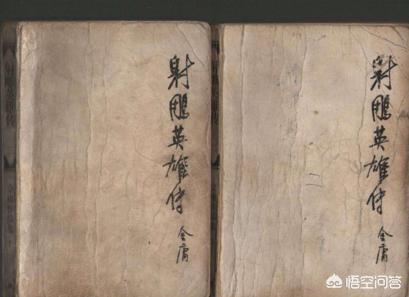 射鵰英雄传
金庸
射鵰英雄传
金庸
悟空问答